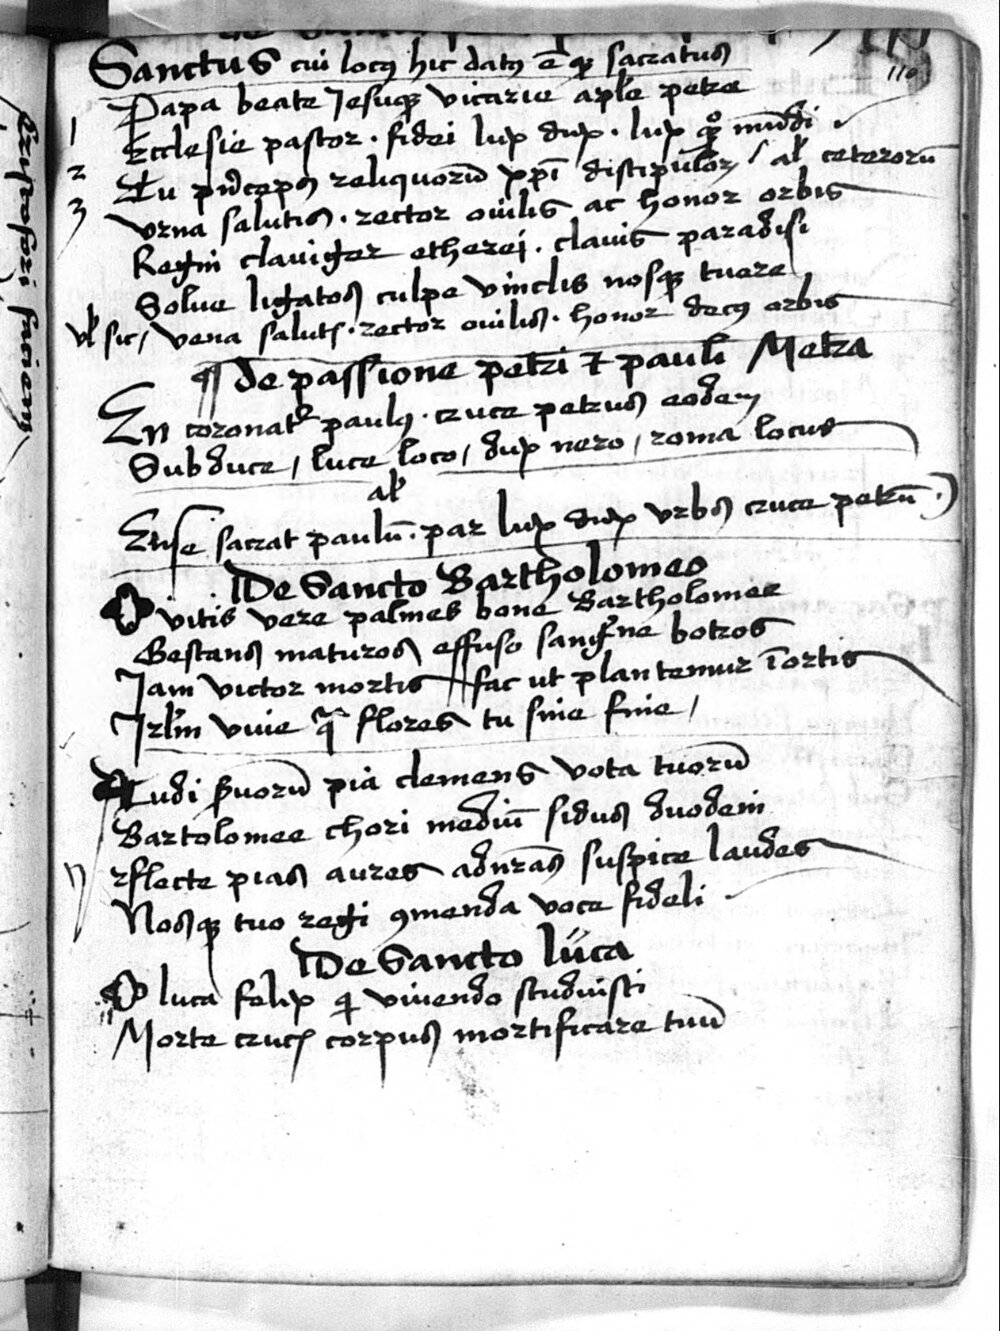 119
Sanctus cui locꝰ hic datꝰ ē qꝫ sacratus
1 Papa beate Jesuqꝫ vicarie apl̄e petre
2 Ecclesie pastor · fidei lux dux · lux qꝫ mūdi
3 Tu pⁱnceps reliquorū xp̄i discipulorꝝ / al̄ ceterorū
vrna salutis · rector ouilis ac honor orbis
Regni clauiger etherei · clauis paradisi
Solue ligatos culpe vinclis nosqꝫ tuere
vl̄ sic / vena salutꝭ · rector ouilis · honor decꝰ orbis
¶ de passione petri ⁊ pauli Metra
En coronatᷣ paulꝰ · cruce petrus eodem
Sub duce / luce loco / dux nero / roma locus
al̄
Ense sacrat paulū · par lux dux vrbs cruce petrū ·
De Sancto Bartholomeo
O vitis vere palmes bone Bartholomee
Gestans maturos effuso sangⁱne botros
Jam victor mortis fac ut plantemur ī ortis
Jrl̄m viuie qͣ flores tu sine fine /
Audi s̄uorū pia clemens vota tuorū
Bartolomee chori mediū sidus duodeni
nflecte pias aures ad nr̄as suscipe laudes
Nosqꝫ tuo regi ꝯmenda voce fideli
De Sancto luca
O luca felix qⁱ viuendo studuisti
Morte crucꝭ corpus mortificare tuū
cristoferi faciem